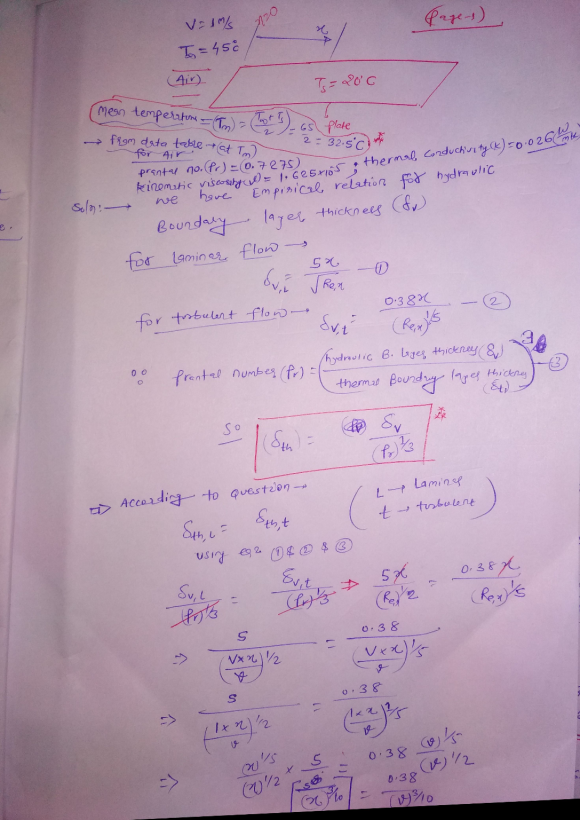 (Page-1)
V = 1 m/s
x=0
x
T∞ = 45°C
(Air)
Ts = 20°C
plate
Mean temperature = (Tm) = (T∞+Ts)/2 = 65/2 = 32.5°C
→ from data table → (at Tm)
for Air
prantal no.(Pr) = (0.7275)
thermal conductivity(k) = 0.026 (W/mk)
kinematic viscosity(ν) = 1.625×10^-5
Soln: → we have Empirical relation for hydraulic
Boundary layer thickness (δv)
for laminar flow →
δv,L = 5x/√Re,x — ①
for turbulent flow → δv,t = 0.38x/(Re,x)^1/5 — ②
∵ prantal number(Pr) = (hydraulic B. layer thickness(δv)/thermal Boundry layer thickness (δth))^3 — ③
So (δth) = δv/(Pr)^1/3
⇒ According to question →
(L → laminar
t → turbulent)
δth,L = δth,t
using eqn ① & ② & ③
δv,L/(Pr)^1/3 = δv,t/(Pr)^1/3 ⇒ 5x/(Re,x)^1/2 = 0.38x/(Re,x)^1/5
⇒ 5/(V×x/ν)^1/2 = 0.38/(V×x/ν)^1/5
⇒ 5/(1×x/ν)^1/2 = 0.38/(1×x/ν)^1/5
⇒ (x)^1/5/(x)^1/2 × 5 = 0.38 (ν)^1/5/(ν)^1/2
(x)^3/10 = 0.38/(ν)^3/10